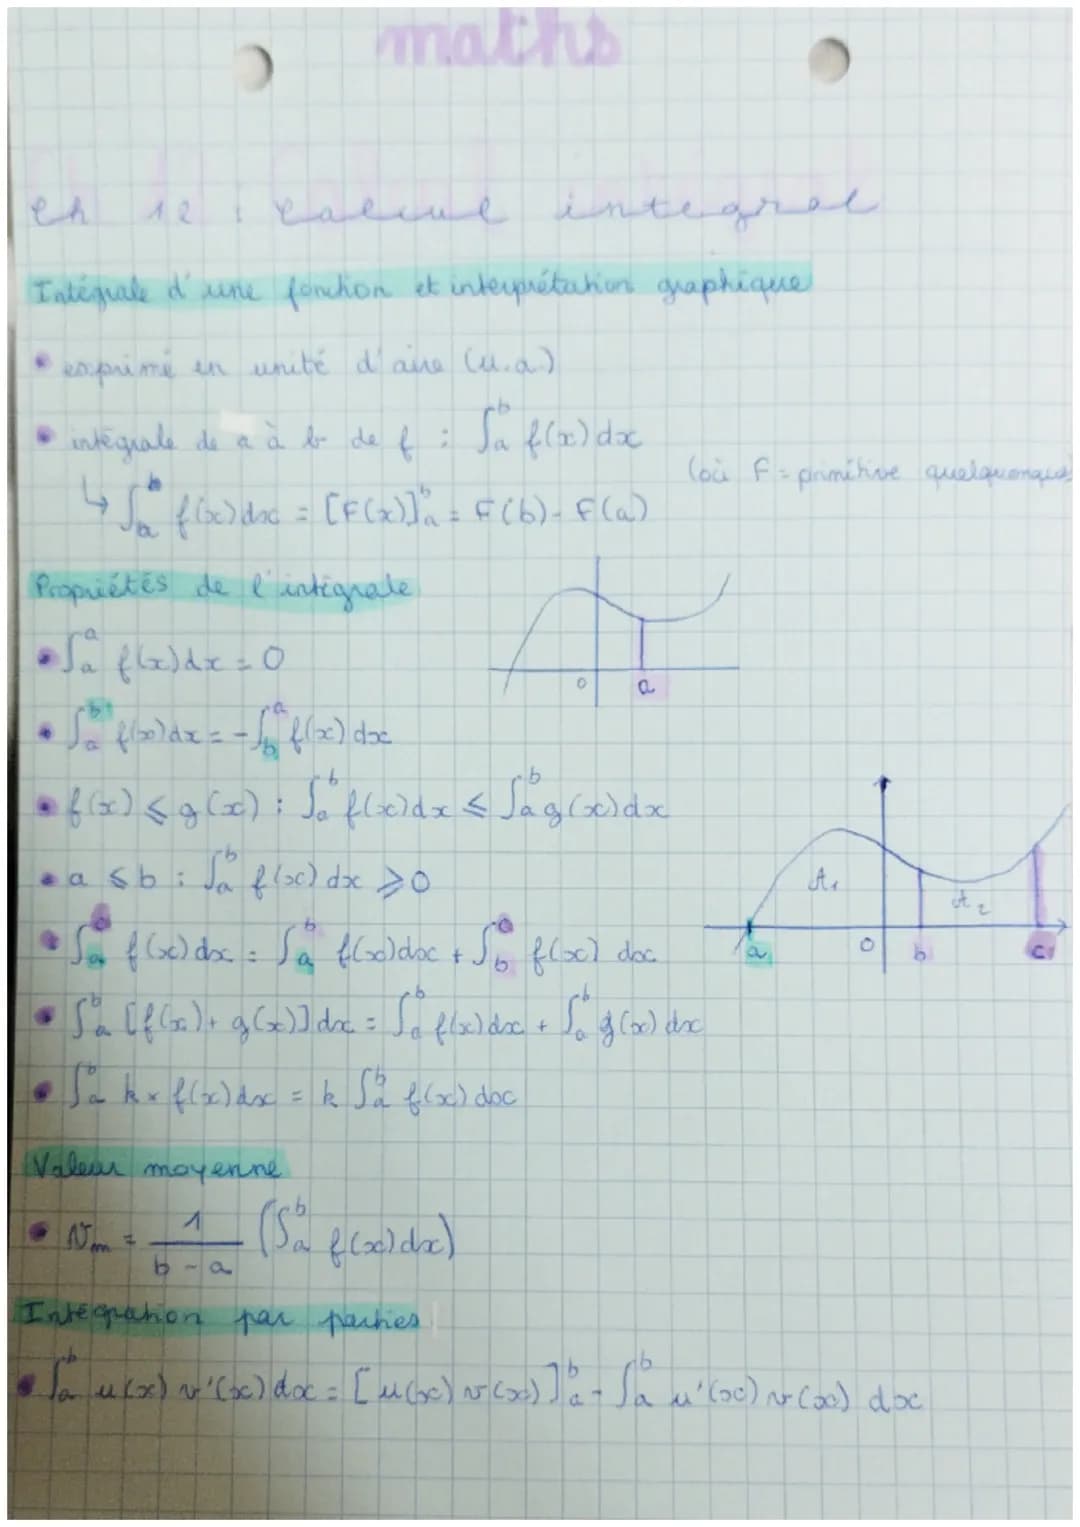 maths
Ch 12 : Calcul intégral
Intégrale d'une fonction et interprétation graphique
• exprimé en unité d'aire (u.a.)
• intégrale de a à b de f : ∫ₐᵇ f(x) dx
(où F = primitive quelquonque)
↳ ∫ₐᵇ f(x) dx = [F(x)]ₐᵇ = F(b) - F(a)
Propriétés de l'intégrale
• ∫ₐᵃ f(x) dx = 0
0 a
• ∫ₐᵇ f(x) dx = -∫_b^a f(x) dx
• f(x) ⩽ g(x) : ∫ₐᵇ f(x) dx ⩽ ∫ₐᵇ g(x) dx
• a ⩽ b : ∫ₐᵇ f(x) dx ⩾ 0
A₁ A₂
• ∫_a^c f(x) dx = ∫_a^b f(x) dx + ∫_b^c f(x) dx
a 0 b c
• ∫ₐᵇ [f(x) + g(x)] dx = ∫ₐᵇ f(x) dx + ∫ₐᵇ g(x) dx
• ∫ₐᵇ k × f(x) dx = k ∫ₐᵇ f(x) dx
Valeur moyenne
• Vm = 1/(b - a) (∫ₐᵇ f(x) dx)
Intégration par parties
• ∫ₐᵇ u(x) v'(x) dx = [u(x) v(x)]ₐᵇ - ∫ₐᵇ u'(x) v(x) dx